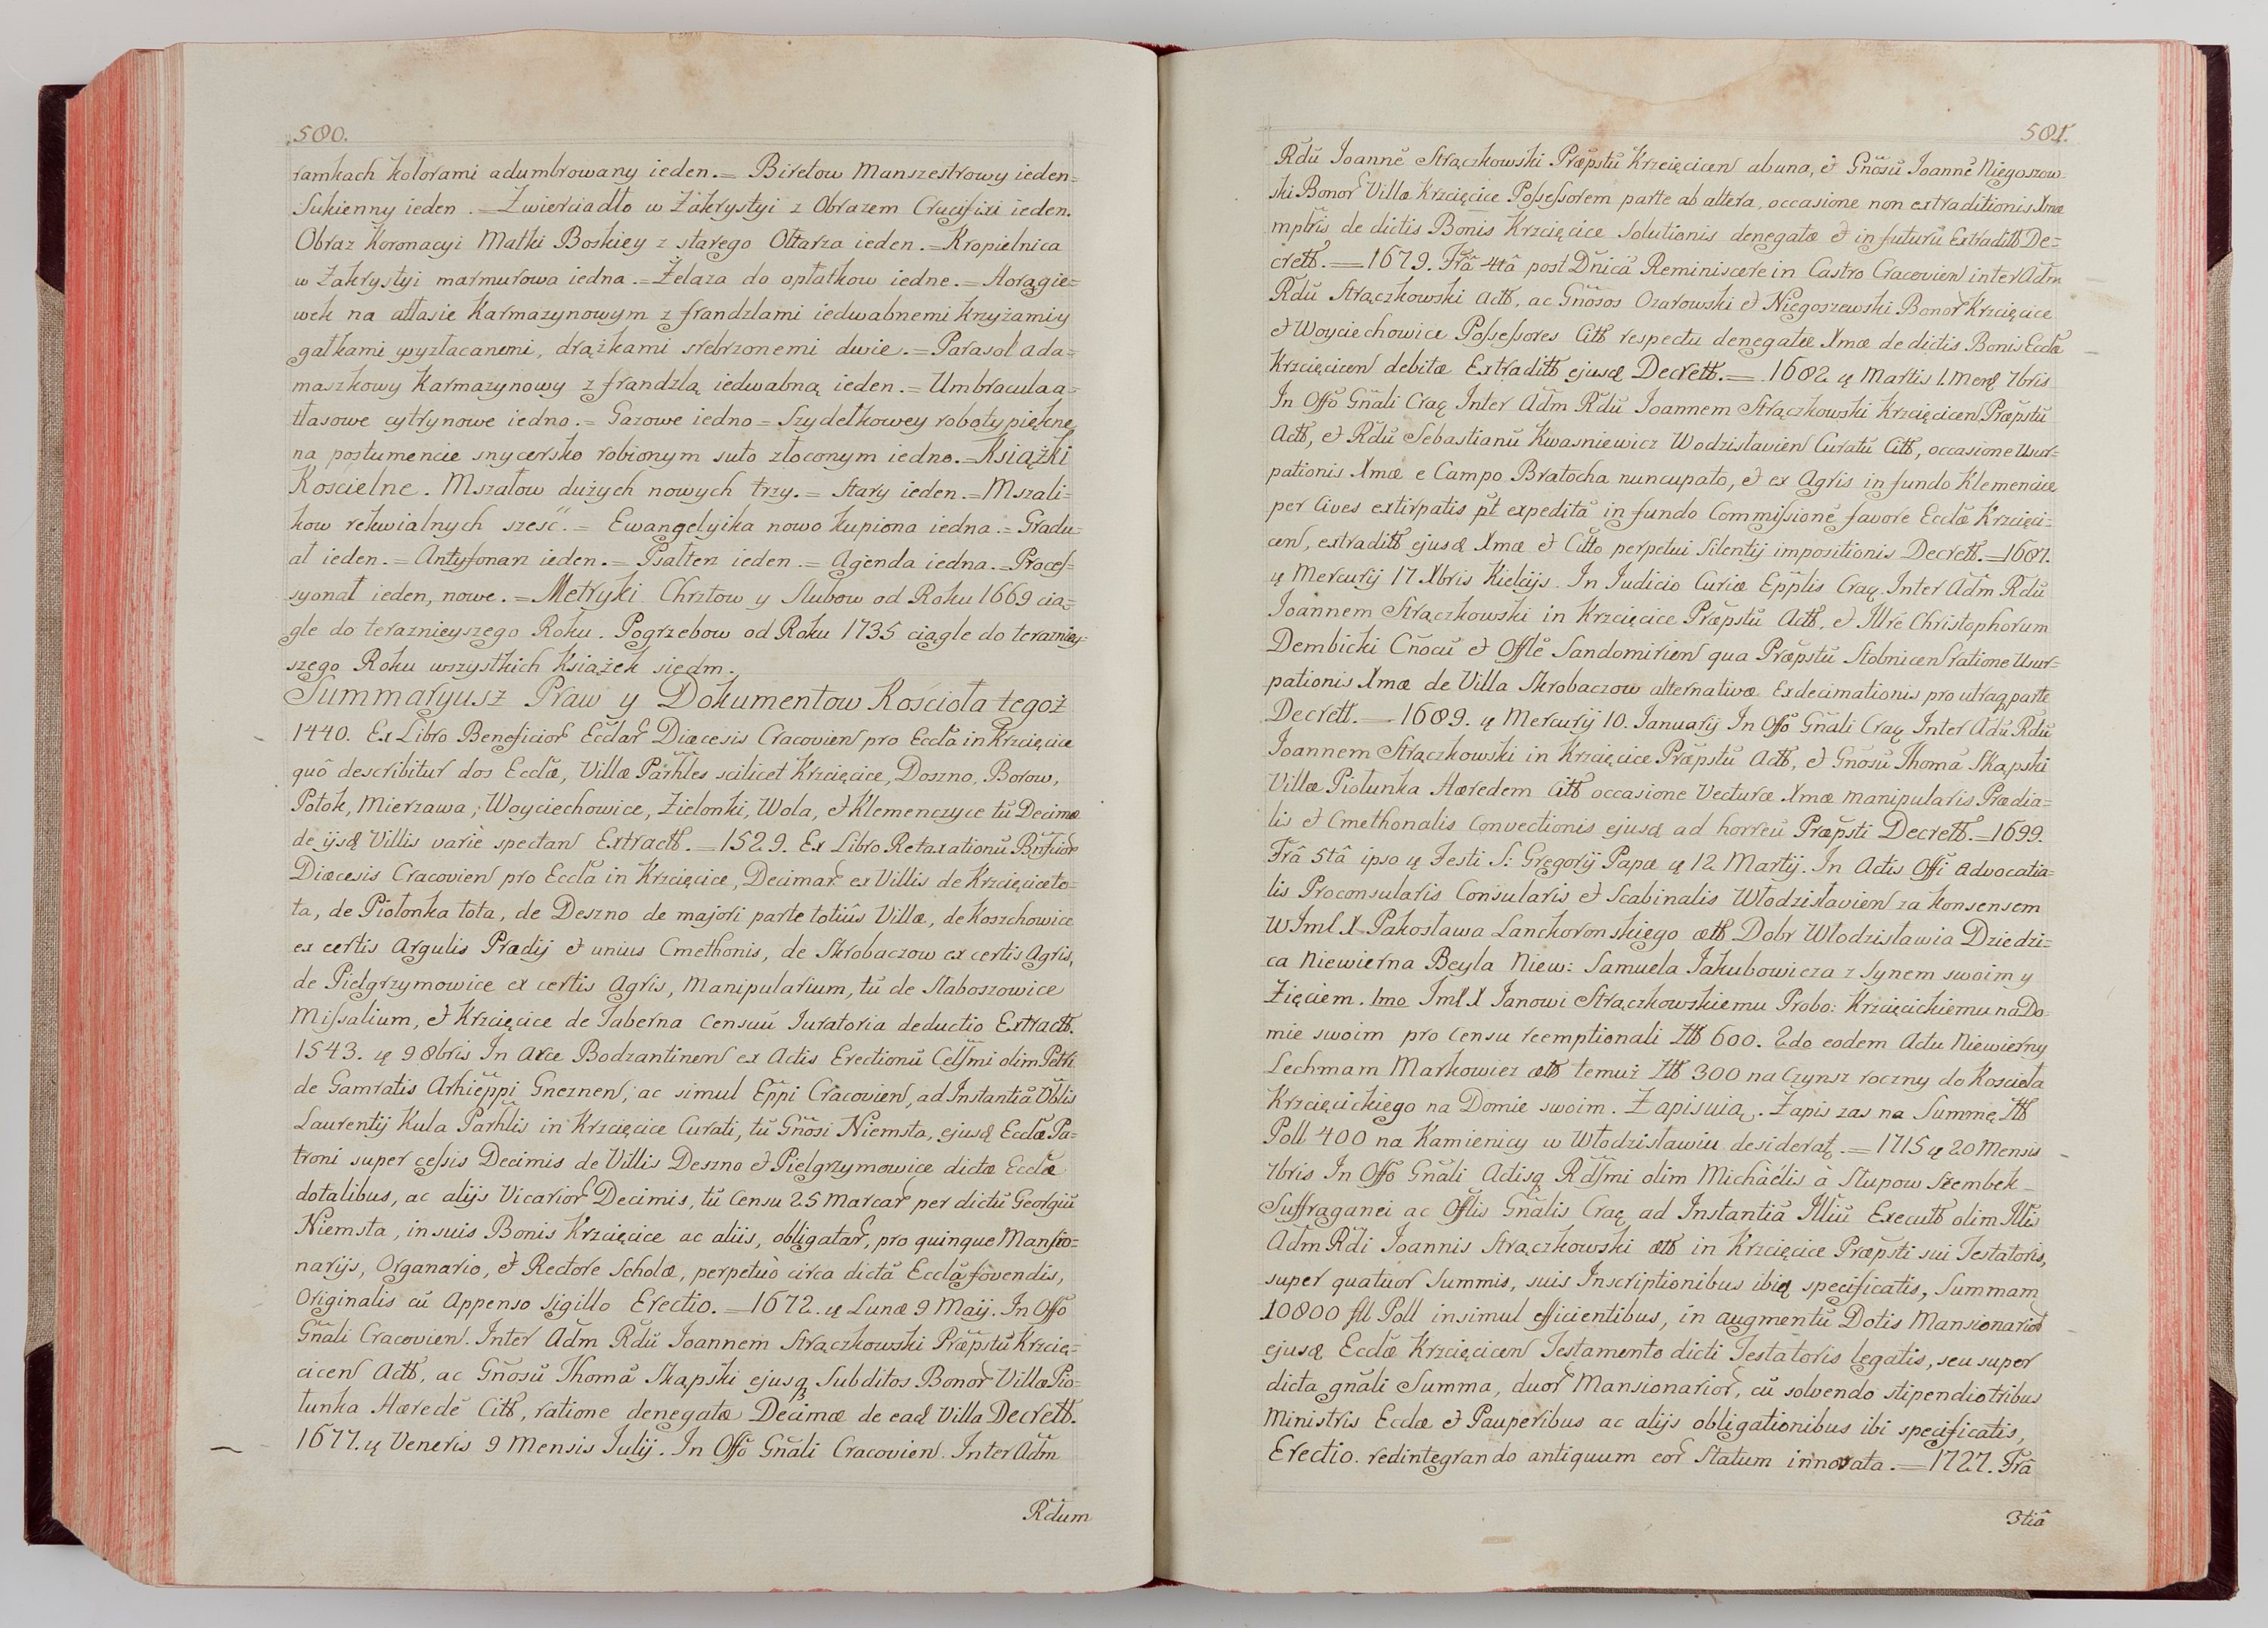 580.
ramkach kolorami adumbrowany ieden. = Biretow Manszestrowy ieden =
Sukienny ieden. = Zwierciadło w Zakrystyi z Obrazem Crucifixi ieden.
Obraz Koronacyi Matki Boskiey z starego Ołtarza ieden. = Kropielnica
w Zakrystyi marmurowa iedna. = Żelaza do opłatkow iedne. = Horągie=
wek na atłasie Karmazynowym z frandzlami iedwabnemi Krzyżami y
gałkami wyzłacanemi, drążkami srebrzonemi dwie. = Parasol ada=
maszkowy Karmazynowy z frandzlą iedwabną ieden. = Umbracula a=
tłasowe cytrynowe iedno. = Gazowe iedno = Szydełkowey roboty piękne,
na postumencie snycersko robionym suto złoconym iedno. = Książki
Kościelne. Mszałow dużych nowych trzy. = Stary ieden. = Mszali=
kow rekwialnych sześć. = Ewangelyika nowo kupiona iedna. = Gradu=
ał ieden. = Antyfonarz ieden. = Psałterz ieden. = Agenda iedna. = Procef=
syonał ieden, nowe. = Metryki Chrztow y Slubow od Roku 1669 cią=
gle do teraznieyszego Roku. Pogrzebow od Roku 1735 ciągle do terazniey=
szego Roku wszystkich Książek siedm.
Summaryusz Praw y Dokumentow Kościoła tegoż
1440. Ex Libro Beneficior Ecclar Diæcesis Cracovien pro Eccla in Krzcięcice
quô describitur dos Ecclæ, Villæ Parhles scilicet Krzcięcice, Doszno, Borow,
Potok, Mierzawa, Woyciechowice, Zielonki, Wola, et Klemenczyce tũ Decimæ
de ijsd Villis varie spectan Extractt. = 1529. Ex Libro Retaxationũ Bnficior
Diæcesis Cracovien pro Eccla in Krzcięcice, Decimar ex Villis de Krzcięcice to=
ta, de Piotonka tota, de Deszno de majori parte totiûs Villæ, de Koszchowice
ex certis Argulis Prædij et unius Cmethonis, de Skrobaczow ex certis Agris,
de Pielgrzymowice ex certis Agris, Manipularium, tũ de Słaboszowice
Mifsalium, et Krzcięcice de Taberna Censuũ Iuratoria deductio Extractt.
1543. ꝗ 9 8bris In Arce Bodzantinen ex Actis Erectionũ Celsmi olim Petri
de Gamratis Arhiẽppi Gneznen, ac simul Ẽppi Cracovien, ad Instantiã Oblis
Laurentij Kula Parhlis in Krzcięcice Curati, tũ Gñosi Niemsta, ejusd Ecclæ Pa=
troni super cefsis Decimis de Villis Deszno et Pielgrzymowice dictæ Ecclæ
dotalibus, ac alijs Vicarior Decimis, tũ Censu 25 Marcar per dictũ Georgiũ
Niemsta, in suis Bonis Krzcięcice ac aliis, obligatar, pro quinque Mansio=
narijs, Organario, et Rectore Scholæ, perpetuò circa dictã Ecclã fovendis,
Originalis cũ Appenso Sigillo Erectio. = 1672. ꝗ Lunæ 9 Maij. In Offo
Gñali Cracovien. Inter Adm Rdũ Joannem Strączkowski Præpstũ Krzcię=
cicen Actt, ac Gñosũ Thomã Skąpski ejusq Subditos Bonor Villæ Pio=
tunka Hæredẽ Citt, ratione denegatæ Decimæ de ead Villa Decrett.
1677. ꝗ Veneris 9 Mensis Julij. In Offo Gñali Cracovien. Inter Adm
Rdum
581.
Rdũ Joannẽ Strączkowski Præpstũ Krzcięcicen ab una, et Gñosũ Joannẽ Niegoszow
ski Bonor Villæ Krzcięcice Pofsefsorem parte ab altera, occasione non extraditionis Xmæ
mplris de dictis Bonis Krzcięcice Solutionis denegatæ et in futurũ Extraditt De=
crett. = 1679. Frã 4tâ post Dñicã Reminiscere in Castro Cracovien inter Adm
Rdũ Strączkowski Actt, ac Gñosos Ozarowski et Niegoszewski Bonor Krzcięcice
et Woyciechowice Pofsefsores Citt respectu denegatæ Xmæ de dictis Bonis Ecclæ
Krzcięcicen debitæ Extraditt ejusd Decrett. = 1682 ꝗ Martis 1. Mens 7bris
In Offo Gñali Crac Inter Adm Rdũ Joannem Strączkowski Krzcięcicen Præpstũ
Actt, et Rdũ Sebastianũ Kwasniewicz Wodzislavien Curatũ Citt, occasione Usur=
pationis Xmæ e Campo Bratocha nuncupato, et ex Agris in fundo Klemencice
per Cives extirpatis pt expeditã in fundo Commifsionẽ favore Ecclæ Krzcięci=
cen, extraditt ejusd Xmæ et Citto perpetui Silentij impositionis Decrett. = 1687.
ꝗ Mercurij 17 Xbris Kielcijs. In Iudicio Curiæ Epplis Crac. Inter Adm Rdũ
Joannem Strączkowski in Krzcięcice Præpstũ Actt, et Illrẽ Christophorum
Dembicki Cñocũ et Offlẽ Sandomirien qua Præpstũ Stobnicen ratione Usur=
pationis Xmæ de Villa Skrobaczow alternativæ Exdecimationis pro utraq parte
Decrett. = 1689. ꝗ Mercurij 10. Januarij In Offo Gñali Crac Inter Adũ Rdũ
Joannem Strączkowski in Krzcięcice Præpstũ Actt, et Gñosũ Thomã Skąpski
Villæ Piotunka Hæredem Citt occasione Vecturæ Xmæ manipularis Prædia=
lis et Cmethonalis Convectionis ejusd ad horreũ Præpsti Decrett. = 1699.
Frã 5tâ ipso ꝗ Festi S: Gregorij Papæ ꝗ 12 Martij. In Actis Offi Advocatia=
lis Proconsularis Consularis et Scabinalis Włodzisłavien za konsensem
WJml X Pakosława Lanckorońskiego ætt Dobr Włodzisławia Dziedzi=
ca Niewierna Beyla Niew: Samuela Jakubowicza z Synem swoim y
Zięciem. 1mo JmX X Janowi Strączkowskiemu Probo: Krzcięcickiemu na Do=
mie swoim pro Censu reemptionali Ztt 600. 2do eodem Actu Niewierny
Lechmam Markowicz ætt temuż Ztt 300 na Czynsz roczny do Kościoła
Krzcięcickiego na Domie swoim. Zapisuią. Zapis zas na Summę Ztt
Poll 400 na Kamienicy w Włodzisławiu desiderat. = 1715 ꝗ 20 Mensis
7bris In Offo Gñali Actisq Rdsmi olim Michàélis à Slupow Szembek
Suffraganei ac Offlis Gñalis Crac ad Instantiã Illiũ Executt olim Illis
Adm Rdi Joannis Strączkowski ætt in Krzcięcice Præpsti sui Testatoris,
super quatuor Summis, suis Inscriptionibus ibid specificatis, Summam
10800 fll Poll insimul efficientibus, in augmentũ Dotis Mansionarior
ejusd Ecclæ Krzcięcicen Testamento dicti Testatoris legatis, seu super
dicta gñali Summa, duor Mansionarior, cũ solvendo stipendio tribus
Ministris Ecclæ et Pauperibus ac alijs obligationibus ibi specificatis,
Erectio. redintegrando antiquum eor Statum innovata. = 1727. Frã
3tiâ